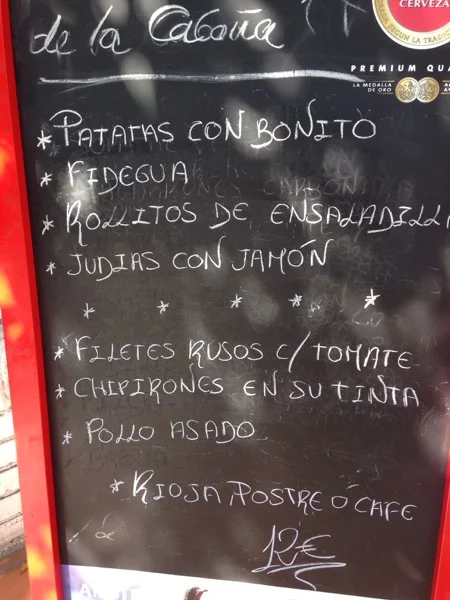 de la Cabaña
CERVEZA
SEGÚN LA TRADIC
PREMIUM QUA
LA MEDALLA
DE ORO
* PATATAS CON BONITO
* FIDEGUA
* ROLLITOS DE ENSALADILLA
* JUDIAS CON JAMÓN
* * * * *
* FILETES RUSOS C/TOMATE
* CHIPIRONES EN SU TINTA
* POLLO ASADO
* RIOJA, POSTRE Ó CAFE
12€